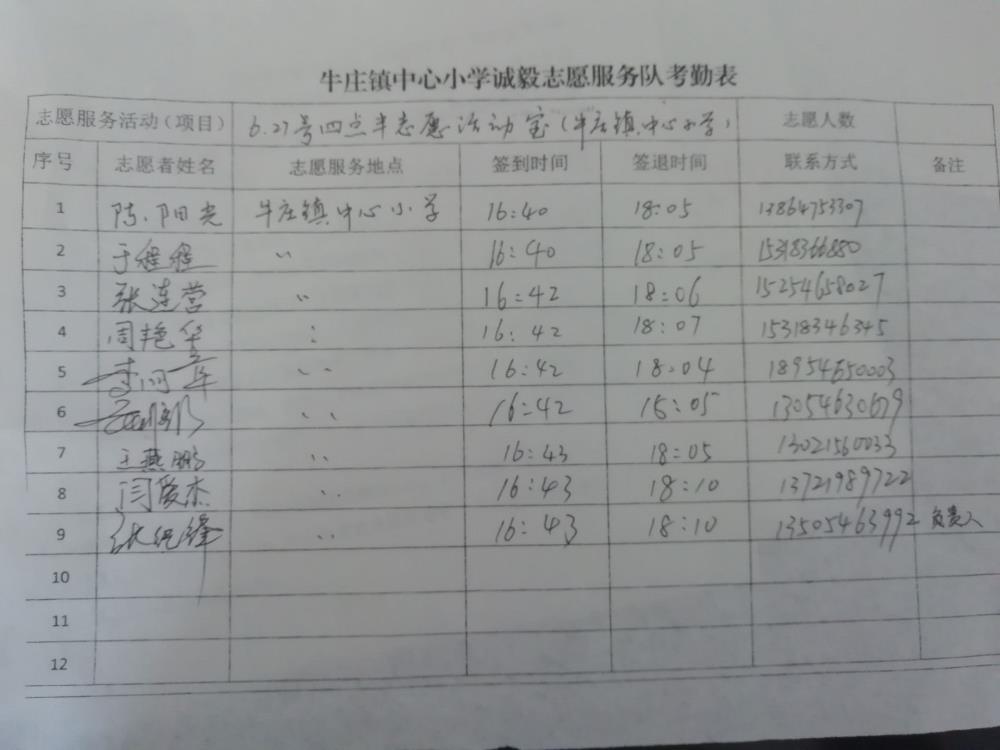 牛庄镇中心小学诚毅志愿服务队考勤表
志愿服务活动(项目) 6.27号四点半志愿活动室(牛庄镇中心小学) 志愿人数
序号 志愿者姓名 志愿服务地点 签到时间 签退时间 联系方式 备注
1 陈阳光 牛庄镇中心小学 16:40 18:05 13864753307
2 于程程 〃 16:40 18:05 15318366880
3 张连营 〃 16:42 18:06 15254658027
4 周艳华 〃 16:42 18:07 15318346345
5 〃 16:42 18:04 18954650003
6 〃 16:42 18:05 13054630679
7 王燕鹏 〃 16:43 18:05 13021560033
8 闫爱杰 〃 16:43 18:10 13721989722
9 〃 16:43 18:10 13505463992 负责人
10
11
12